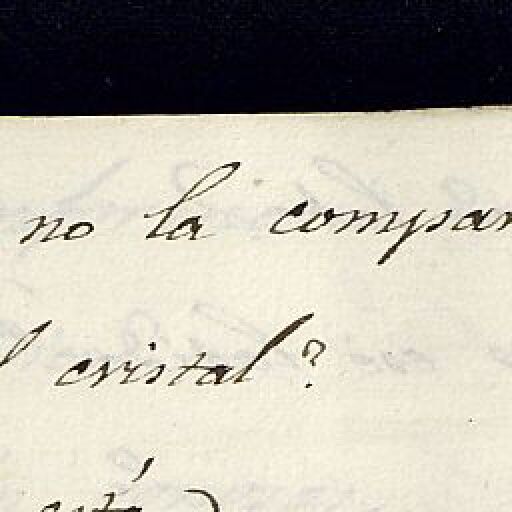 no la compar
l cristal?
está